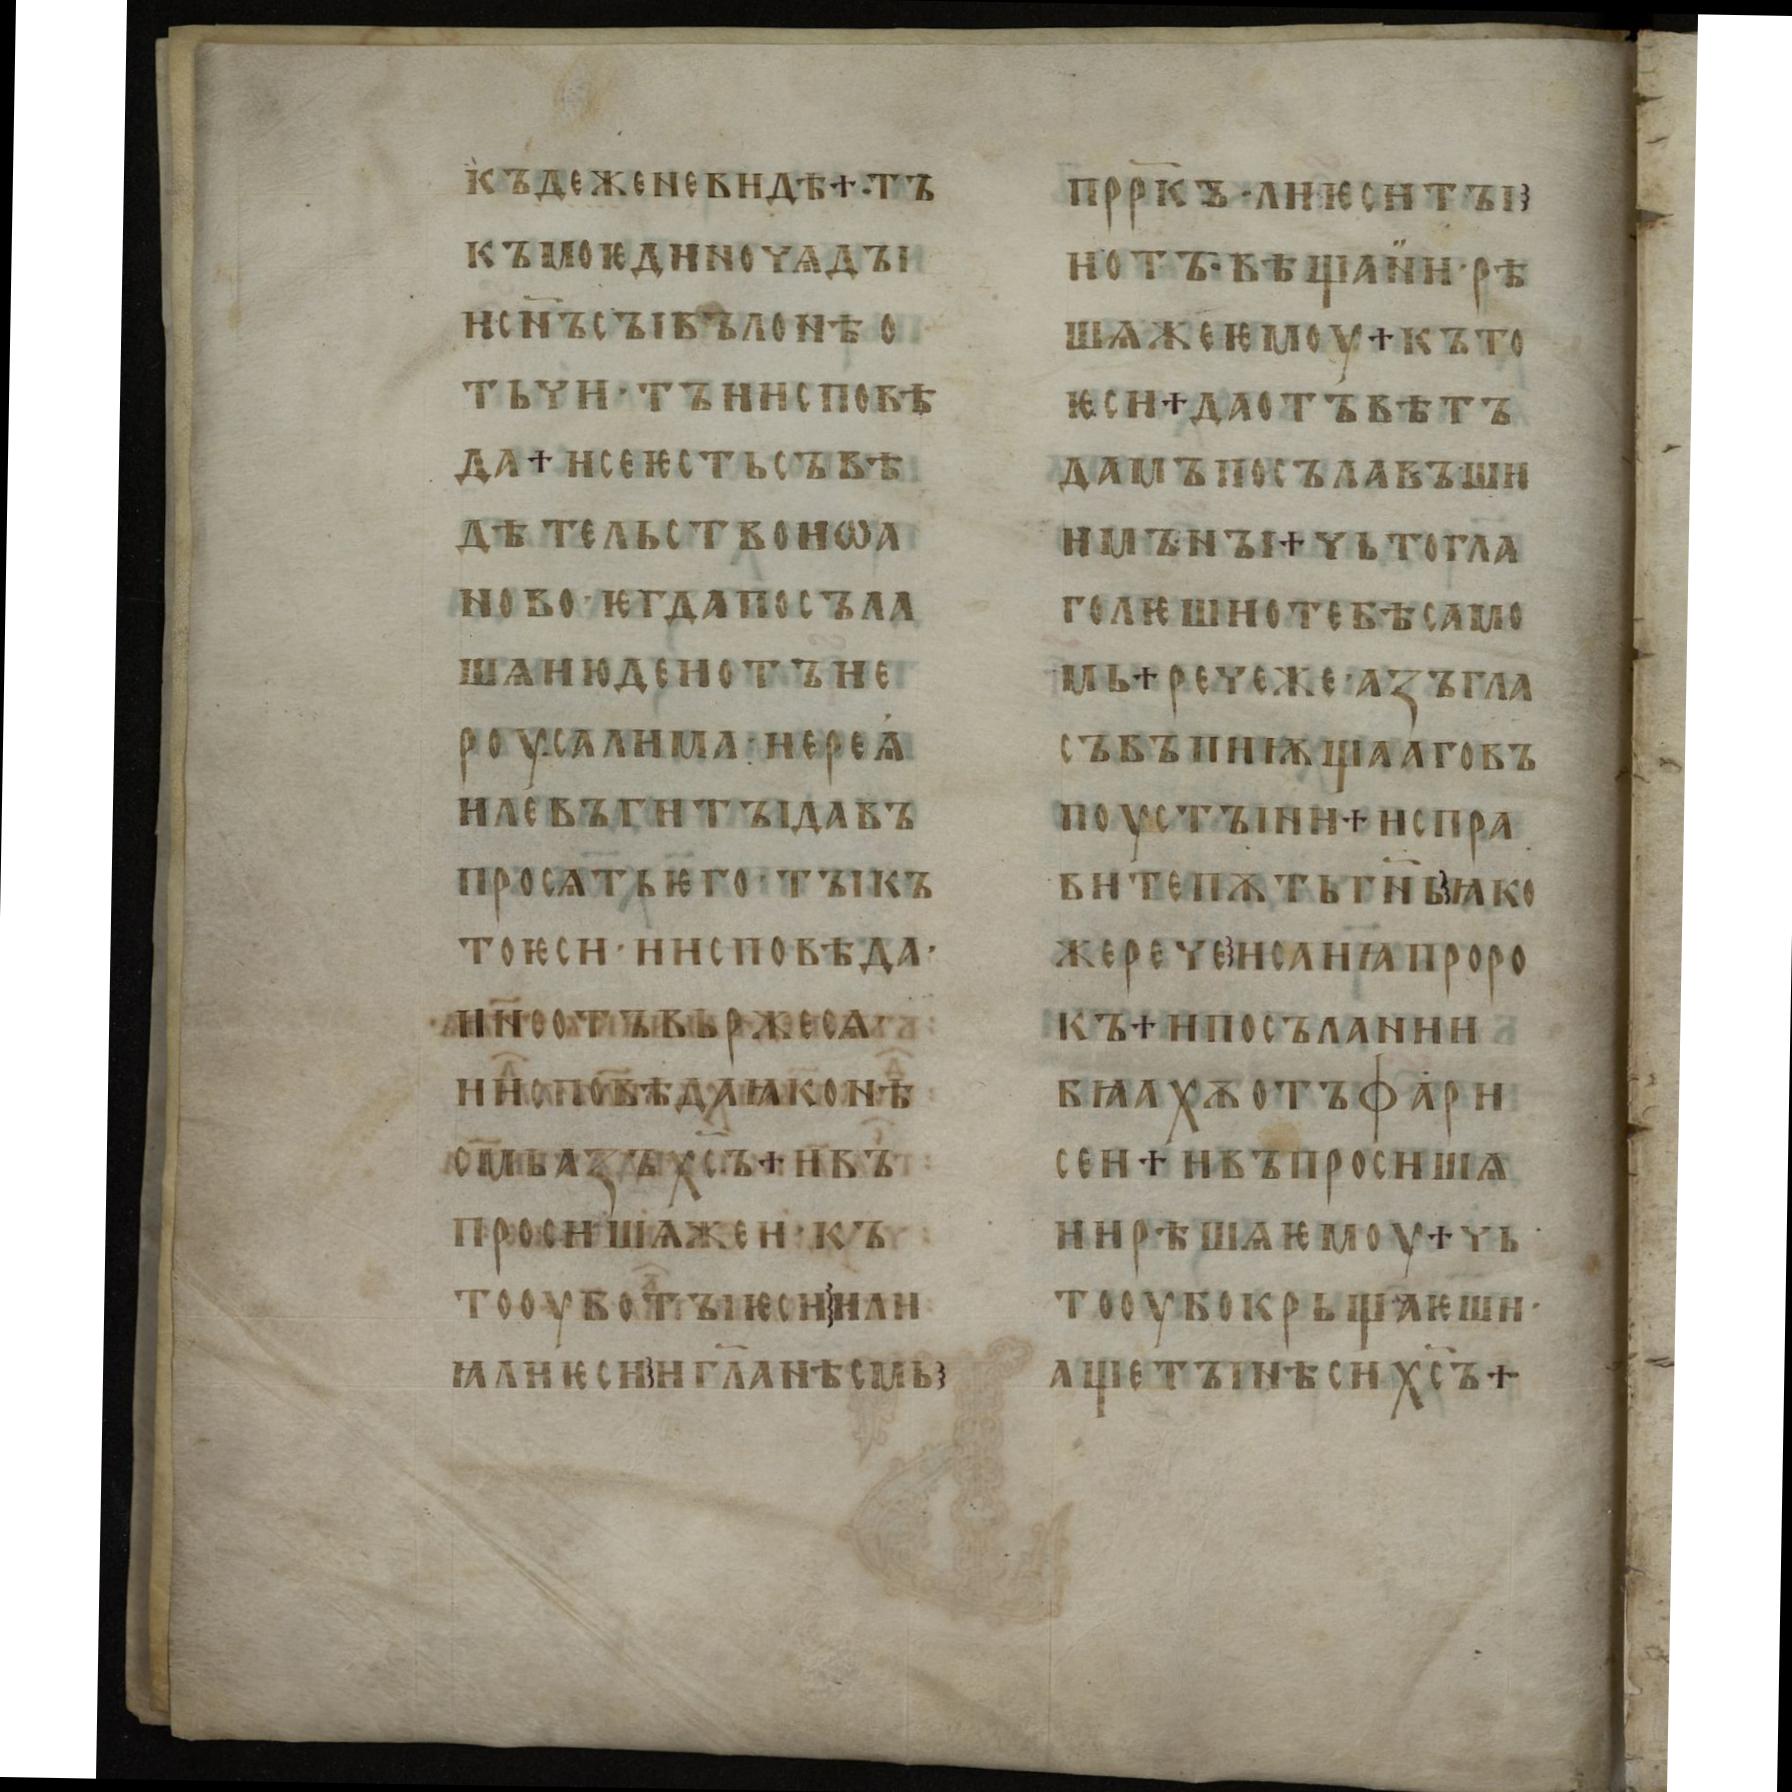 къдеженевидѣ+·тъ
къмоѥдиночѧдꙑ
исн҃ъсꙑвълонѣо
тьчи·тъиисповѣ
да+исеѥстьсъвѣ
дѣтельствоиѡа
ново·ѥгдапосъла
шѧиюдеиотъие
роусалима·иереѧ
илевъгитꙑдавъ
просѧтьѥго·тꙑкъ
тоѥси·иисповѣда·
ин҃еотъвьржесѧ
иисповѣдаꙗконѣ
смьазъхс҃ъ+ивъ
просишѧжеи·къ
тооуботꙑѥсиили
ꙗлиѥсииг҃ланѣсмь
прр҃къ·лиѥситꙑ
иотъ·вѣщании·рѣ
шѧжеѥмоу+къто
ѥси+даотъвѣтъ
дамъпосълавъши
имънꙑ+чьтогла
голѥшиотебѣсамо
мь+речеже·азъгла
съвъпиѭщааговъ
поустꙑни+испра
витепѫтьгн҃ьꙗко
жеречеисаиꙗпроро
къ+ипосълании
бꙗахѫотъфари
сеи+ивъпросишѧ
иирѣшѧѥмоу+чь
тооубокрьщаѥши·
ащетꙑнѣсихс҃ъ+